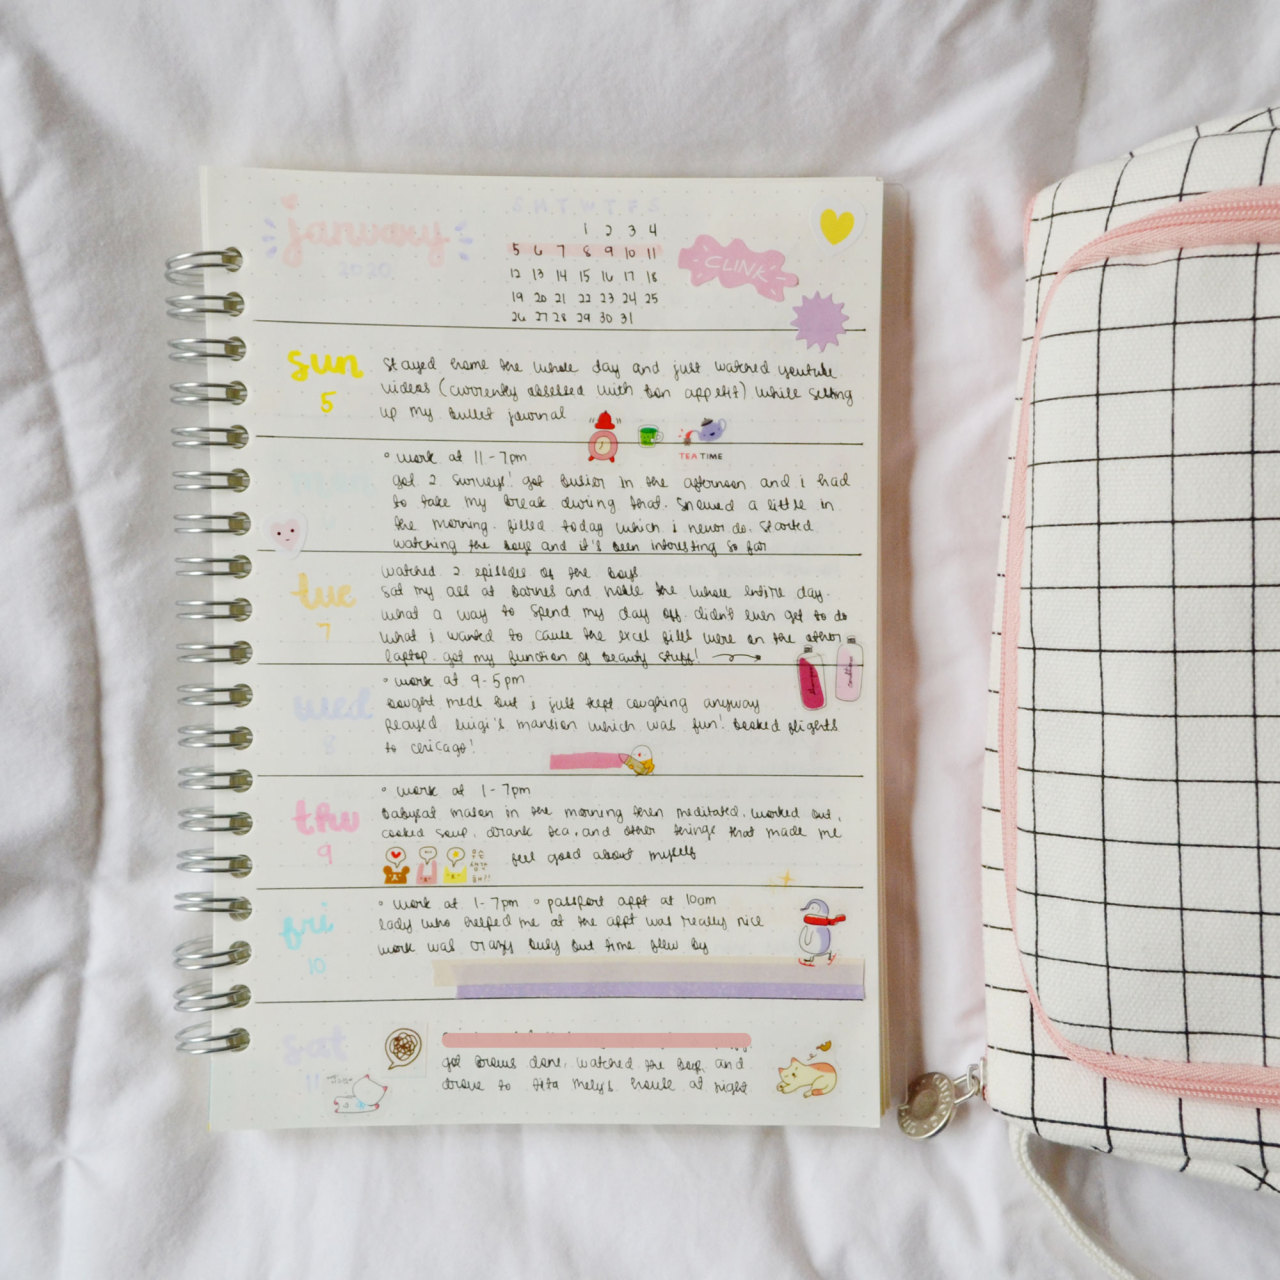 january
2020
S M T W T F S
1 2 3 4
5 6 7 8 9 10 11
12 13 14 15 16 17 18
19 20 21 22 23 24 25
26 27 28 29 30 31
CLINK
sun
5
stayed home the whole day and just watched youtube
videos (currently obsessed with bon appetit) while setting
up my bullet journal
TEA TIME
mon
• work at 11-7pm
got 2 surveys! got busier in the afternoon and i had
to take my break during that. snowed a little in
the morning. filled today which i never do. started
watching the boys and it's been interesting so far
tue
7
watched 2 episodes of the boys
sat my ass at barnes and noble the whole entire day.
what a way to spend my day off. didn't even get to do
what i wanted to cause the excel files were on the other
laptop. got my function of beauty stuff!
shampoo
conditioner
wed
8
• work at 9-5pm
bought meds but i just kept coughing anyway
played luigi's mansion which was fun! booked flights
to chicago!
thu
9
• work at 1-7pm
babysat mason in the morning then meditated, worked out,
cooked soup, drank tea, and other things that made me
feel good about myself
fri
10
• work at 1-7pm • passport appt at 10am
lady who helped me at the appt was really nice
work was crazy busy but time flew by
sat
11
got brows done, watched the boys, and
drove to tita mely's house at night